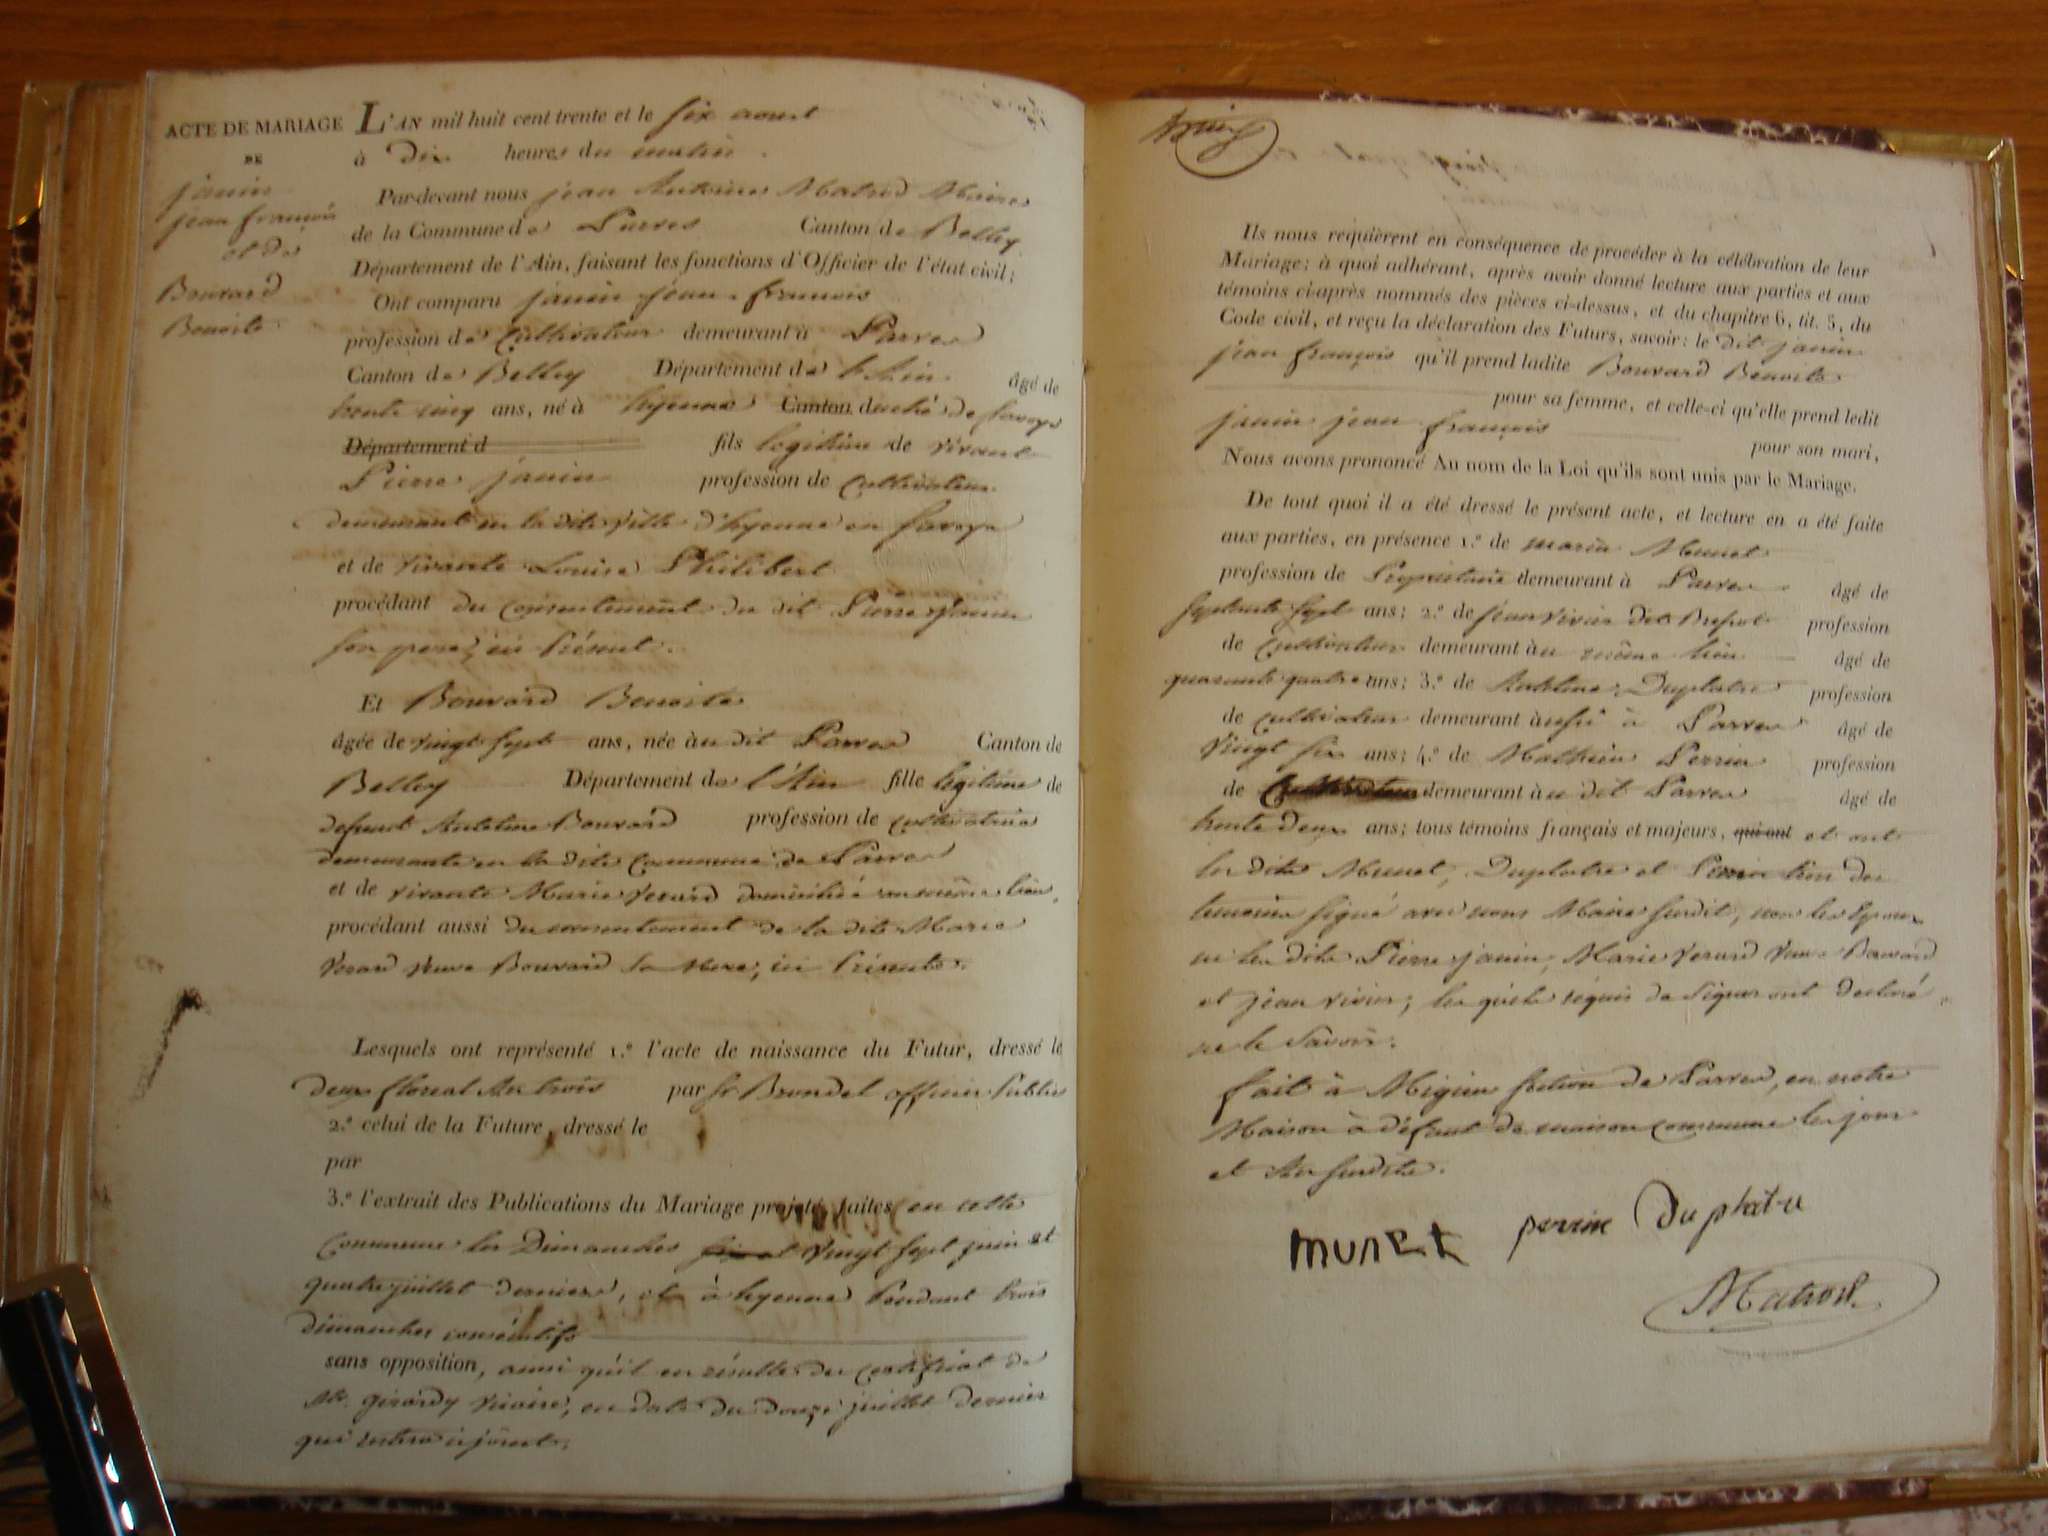 ACTE DE MARIAGE
DE
janin
jean françois
et de
Bouvard
Benoite
L'AN mil huit cent trente et le six aoust
à dix heures du matin.
Par-devant nous jean Antoine Matrod Maire
de la Commune de Parves Canton de Belley
Département de l'Ain, faisant les fonctions d'Officier de l'état civil;
Ont comparu janin jean-françois
profession de Cultivateur demeurant à Parves
Canton de Belley Département de l'Ain âgé de
trente cinq ans, né à hyenne Canton duché de Savoye
Département d fils legitime de vivant
Pierre janin profession de Cultivateur
demeurant en la dite ville d'hyenne en Savoye
et de vivante Louise Philibert
procédant du consentement du dit Pierre janin
son pere, ici Présent.
Et Bouvard Benoite
âgée de vingt sept ans, née àu dit Parves Canton de
Belley Département de l'Ain fille legitime de
defunct Antelme Bouvard profession de cultivatrice
demeurante en la dite Commune de Parves
et de vivante Marie Verard domiciliée au même lieu,
procédant aussi du consentement de la dite Marie
Verard veuve Bouvard sa Mere, ici Présente.
Lesquels ont représenté 1.º l'acte de naissance du Futur, dressé le
deux floreal An trois par Sr Brondel officier Public
2.º celui de la Future, dressé le
par
3.º l'extrait des Publications du Mariage projeté, faites en cette
Commune les Dimanches vingt sept juin et
quatre juillet derniers, et à hyenne Pendant trois
dimanches consécutifs
sans opposition, ainsi qu'il en résulte du certificat de
Mr. girardy vicaire, en date du douze juillet dernier
qui restera cijoint.
Ils nous requièrent en conséquence de procéder à la célébration de leur
Mariage; à quoi adhérant, après avoir donné lecture aux parties et aux
témoins ci-après nommés des pièces ci-dessus, et du chapitre 6, tit. 5, du
Code civil, et reçu la déclaration des Futurs, savoir: le dit janin
jean françois qu'il prend ladite Bouvard Benoite
pour sa femme, et celle-ci qu'elle prend ledit
janin jean françois pour son mari,
Nous avons prononcé Au nom de la Loi qu'ils sont unis par le Mariage.
De tout quoi il a été dressé le présent acte, et lecture en a été faite
aux parties, en présence 1.º de marin Munet
profession de Propriétaire demeurant à Parves âgé de
septante sept ans; 2.º de jean vivier dit profession
de Cultivateur demeurant àu même lieu âgé de
quarante quatre ans; 3.º de Antelme Duplatre profession
de cultivateur demeurant àussi à Parves âgé de
vingt six ans; 4.º de Mathieu Perrin profession
de Cultivateur demeurant àu dit Parves âgé de
trente deux ans; tous témoins français et majeurs, qui ont et ont
les dits Munet, Duplatre et Perrin trois des
temoins signé avec nous Maire susdit, non les Epoux
ni les dits Pierre janin, Marie Verard veuve Bouvard
et jean vivier; les quels requis de signer ont declaré
ne le savoir.
fait à Migieu section de Parves, en notre
Maison à défaut de maison commune les jour
et An susdits.
munet perrin Duplatre
Matrod